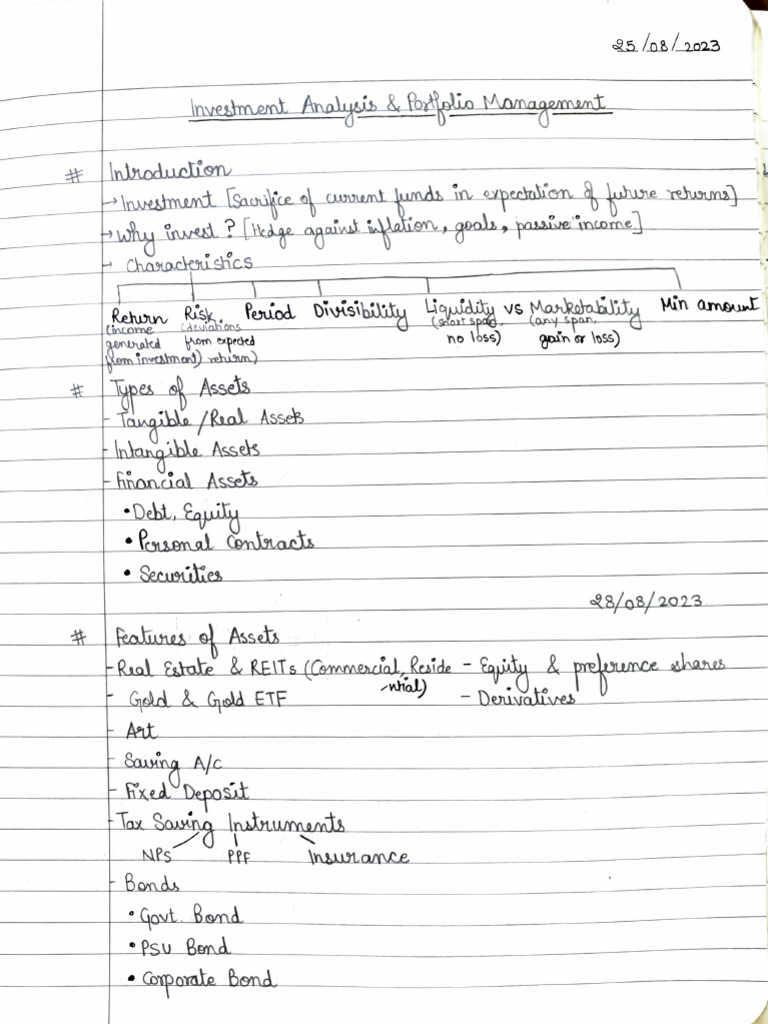 25/08/2023
Investment Analysis & Portfolio Management
# Introduction
→ Investment [Sacrifice of current funds in expectation of future returns]
→ Why invest? [Hedge against inflation, goals, passive income]
→ Characteristics
Return Risk Period Divisibility Liquidity vs Marketability Min amount
(income (deviations (short span, (any span,
generated from expected no loss) gain or loss)
from investment) return)
# Types of Assets
- Tangible/Real Assets
- Intangible Assets
- Financial Assets
• Debt, Equity
• Personal Contracts
• Securities
28/08/2023
# Features of Assets
- Real Estate & REITs (Commercial, Reside - Equity & preference shares
-ntial)
- Gold & Gold ETF - Derivatives
- Art
- Saving A/c
- Fixed Deposit
- Tax Saving Instruments
NPS PPF Insurance
- Bonds
• Govt. Bond
• PSU Bond
• Corporate Bond